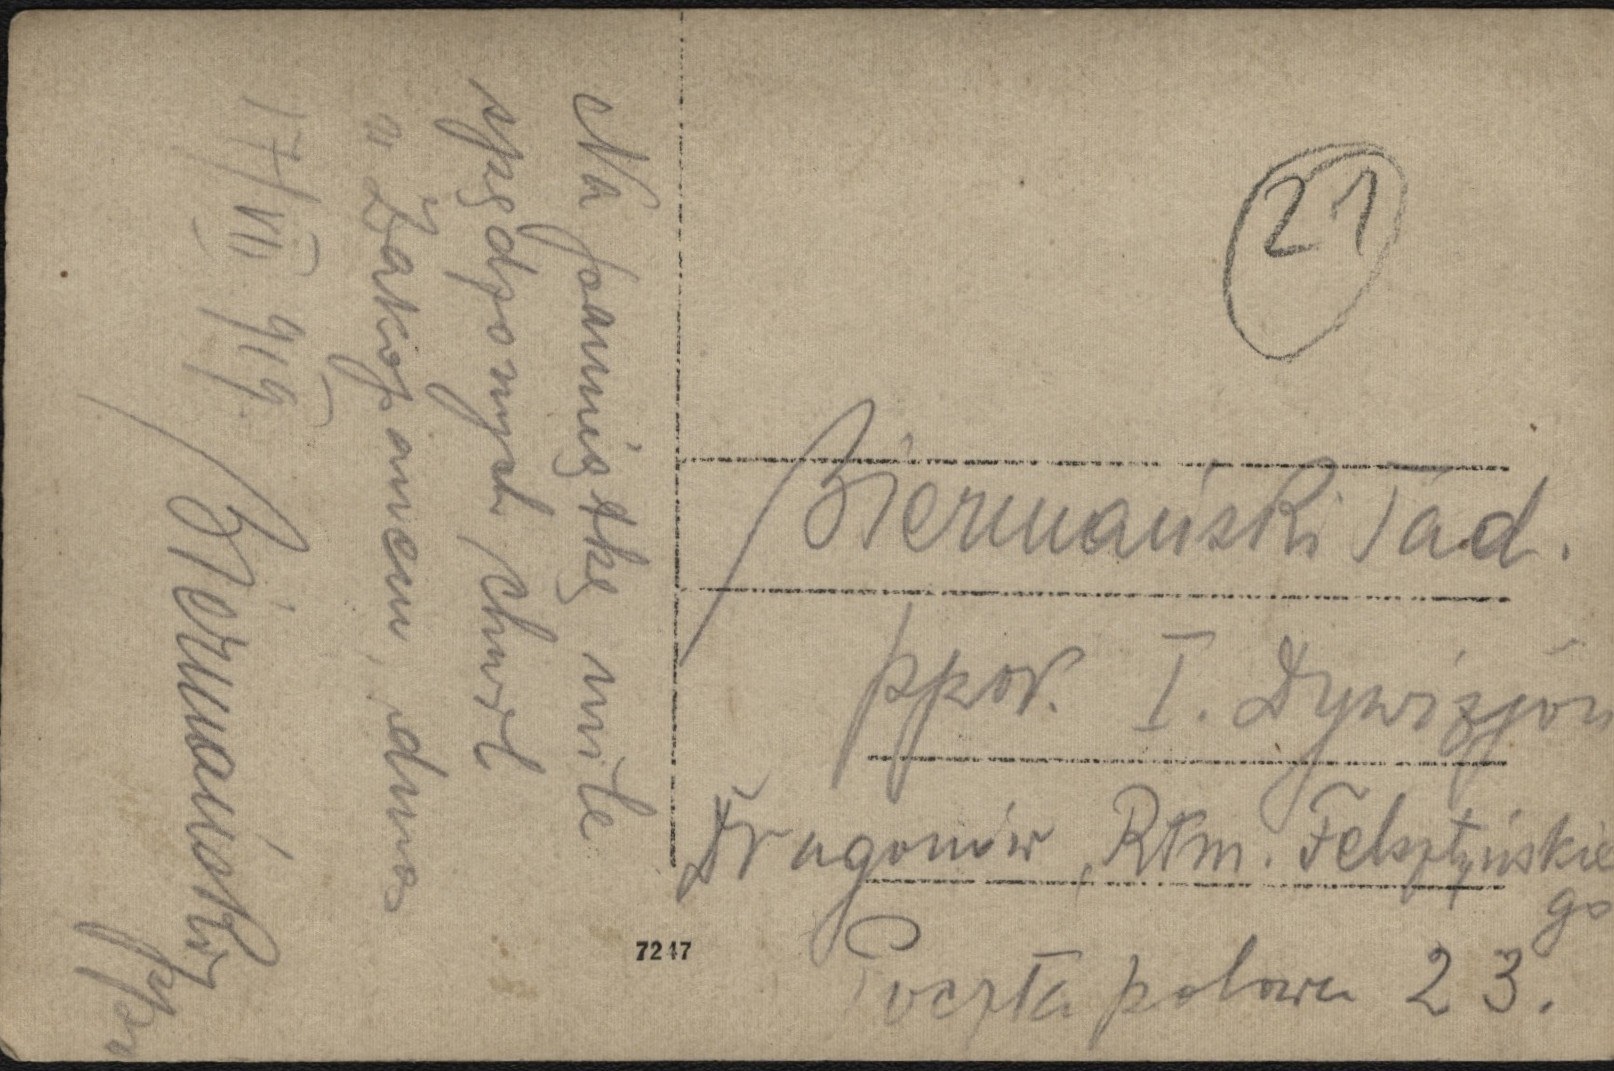 Na pamiątkę mile
spędzonych chwil
w Zakopanem, dnia
17/VII 919
Biermański
ppor.
21
Biermański Tad.
ppor. I. Dywizjon
Dragonów, Rtm. Felsztyńskie
go
Poczta polowa 23.
7247